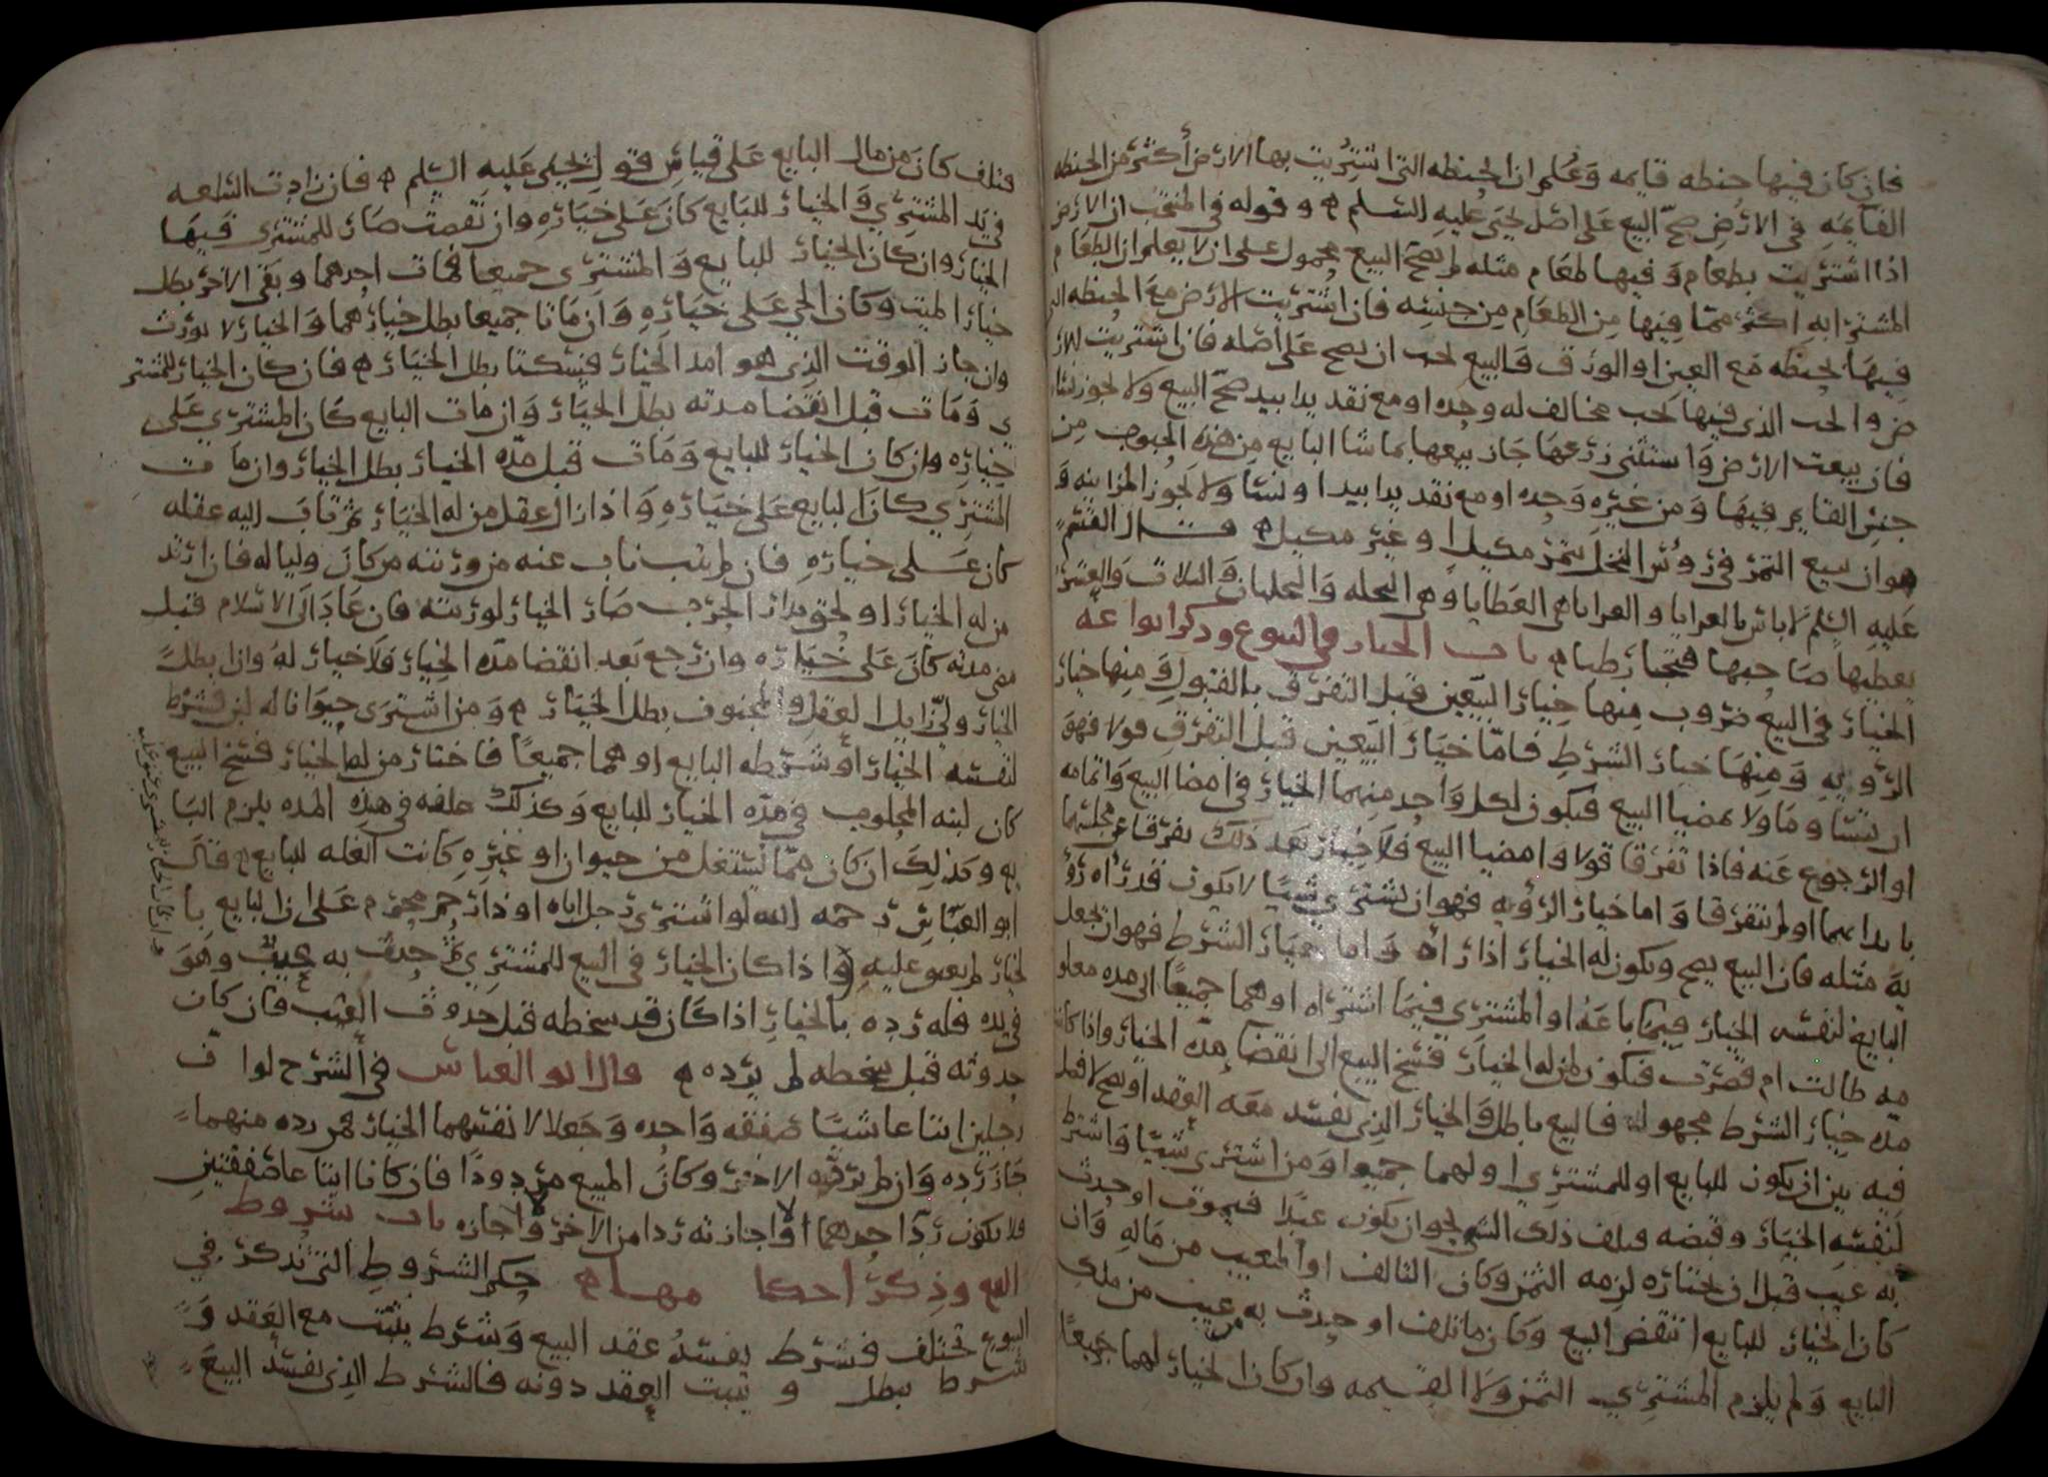 فان كان فيها حنطه قايمه وعلم ان الحنطه التى اشتريت بها الارض أكثر من الحنطه
القايمه فى الارض صح البيع على اصل يحيى عليه السلم ه وقوله فى المنتخب ان الارض
اذا اشتريت بطعام وفيها طعام مثله لم يصح البيع محمول على ان لا يعلم ان الطعام
المشترا به اكثر مما فيها من الطعام من جنسه فان اشتريت الارض مع الحنطه التى
فيها بحنطه مع العين او الورق فالبيع يجب ان يصح على اصله فان اشتريت الار
ض والحب الذى فيها بحب مخالف له وحده او مع نقد يدا بيد صح البيع ولا يجوز نسا
فان بيعت الارض واستثنى زرعها جاز بيعها بما شا البايع من هذه الحبوب من
جنس القايم فيها ومن غيره وحده او مع نقد يدا بيد او نسا ولا يجوز المزابنه و
هو ان يبيع التمر فى رؤس النخل بتمر مكيلا وغير مكيل ه قال القسم
عليه السلم لا باس بالعرايا والعرايا هى العطايا وهى النخله والنخلتان والثلاث والعشر
يعطيها صاحبها فيجتناز طبا ه باب الخيار فى البيوع وذكر انواعه
الخيار فى البيع ضروب منها خيار البيعين قبل التفرق بالقبول ومنها خيار
الرؤيه ومنها خيار الشرط فاما خيار البيعين قبل التفرق قولا فهو
ان ينشا وما ولا يمضيا البيع فيكون لكل واحد منهما الخيار فى امضا البيع واتمامه
او الرجوع عنه فاذا تفرقا قولا وامضيا البيع فلا خيار بعد ذلك تفرقا عن مجلسهما
بابدانهما او لم يتفرقا واما خيار الرؤيه فهو ان يشترى شيئا لا يكون قد رأه رؤ
يه مثله فان البيع يصح ويكون له الخيار اذا رأه واما خيار الشرط فهو ان يجعل
البايع لنفسه الخيار فيما باعه او المشترى فيما اشتراه او هما جميعا الى مده معلو
مه طالت ام قصرت فيكون لمن له الخيار فسخ البيع الى انقضا مده الخيار واذا كانت
مده خيار الشرط مجهوله فالبيع باطل والخيار الذى يفسد معه العقد او يصح لا فصل
فيه بين ان يكون للبايع او للمشترى او لهما جميعا ومن اشترى شيئا واشترط
لنفسه الخيار وقبضه فتلف ذلك الشى نحو ان يكون عبدا فيموت او حدث
به عيب قبل ان يختاره لزمه الثمن وكان التالف او المعيب من ماله وان
كان الخيار للبايع انتقض البيع وكان ما تلف او حدث به من عيب من ملك
البايع ولم يلزم المشترى الثمن ولا القيمه وان كان الخيار لهما جميعا
فتلف كان من مال البايع على قياس قول يحيى عليه السلم ه فان زادت السلعه
فى يد المشترى والخيار للبايع كان على خياره وان نقصت صار للمشترى فيها
الخيار وان كان الخيار للبايع والمشترى جميعا فمات احدهما وبقى الاخر بطل
خيار الميت وكان الحى على خياره وان ماتا جميعا بطل خيارهما والخيار لا يورث
وان جاز الوقت الذى هو امد الخيار فسكتا بطل الخيار ه فان كان الخيار للمشتر
ي ومات قبل انقضا مدته بطل الخيار وان مات البايع كان المشترى على
خياره وان كان الخيار للبايع ومات قبل مده الخيار بطل الخيار وان مات
المشترى كان البايع على خياره واذا زال عقل من له الخيار ثم ثاب اليه عقله
كان على خياره فان لم يثب ناب عنه من ورثته من كان وليا له فان ارتد
من له الخيار او لحق بدار الحرب صار الخيار لورثته فان عاد الى الاسلام قبل
مضى مدته كان على خياره وان رجع بعد انقضا مده الخيار فلا خيار له وان ابطل
الخيار ولى زايل العقل والمجنون بطل الخيار ه ومن اشترى حيوانا له لبن فشرط
لنفسه الخيار او شرطه البايع او هما جميعا فاختار من له الخيار فسخ البيع
كان لبنه المحلوب فى مده الخيار للبايع وكذلك علفه فى هذه المده يلزم البا
يع وكذلك ان كان مما يستغل من حيوان او غيره كانت الغله للبايع ه قال
ابو العباس رحمه الله لو اشترى رجل اباه او ذا رحم محرم على ان البايع با
لخيار لم يعتق عليه واذا كان الخيار فى البيع للمشترى ثم حدث به عيب وهو
فى يده فله رده بالخيار اذا كان قد سخطه قبل حدوث العيب فان كان
حدوثه قبل سخطه لم يرده ه قال ابو العباس فى الشرح لو ان
رجلين ابتاعا شيئا صفقه واحده وجعلا لانفسهما الخيار فمن رده منهما
جاز رده وان لم يرده الاخر وكان المبيع مردودا فان كانا ابتاعا صفقتين
فلا يكون رد احدهما او اجازته ردا من الاخر ولا اجازه باب شروط
البيع وذكر احكامها ه حكم الشروط التى تذكر فى
البيوع تختلف فشرط يفسد عقد البيع وشرط يثبت مع العقد و
شرط يبطل و يثبت العقد دونه فالشرط الذى يفسد البيع